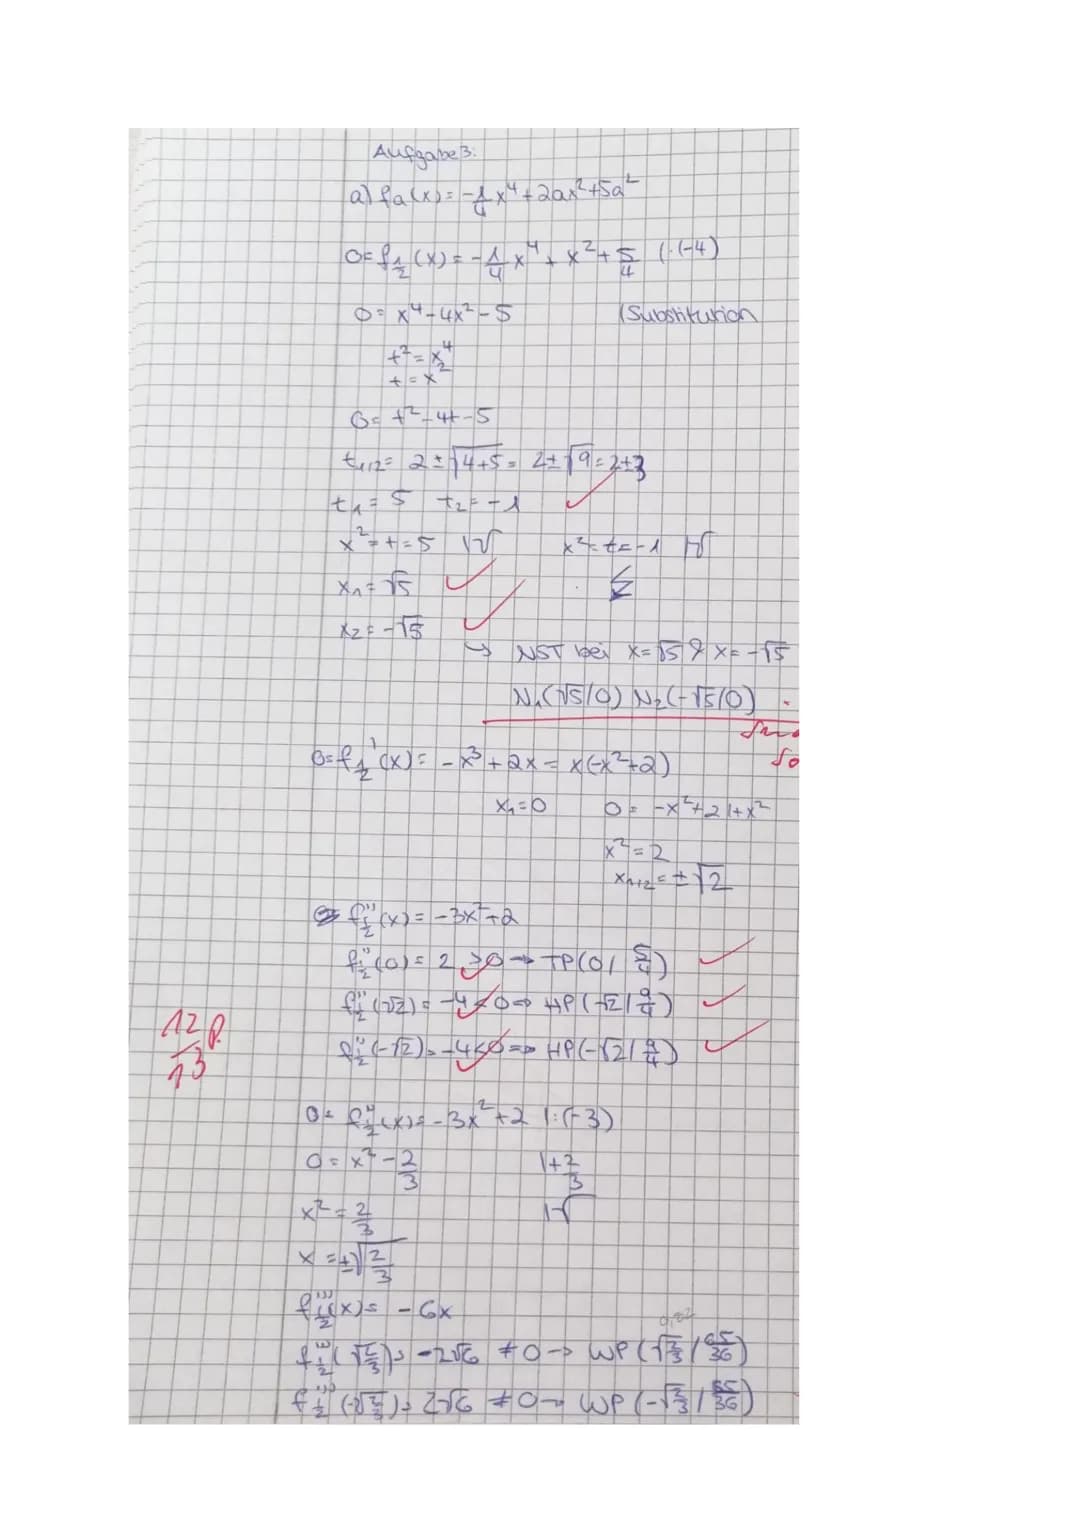 Aufgabe 3:
a) fa(x) = -1/4 x⁴ + 2ax² + 5a²
0 = f½(x) = -1/4 x⁴ + x² + 5/4 |·(-4)
0 = x⁴ - 4x² - 5 |Substitution
t² = x⁴
t = x²
0 = t² - 4t - 5
t₁/₂ = 2 ± √4+5 = 2 ± √9 = 2±3
t₁ = 5 t₂ = -1
x² = t = 5 |√ x² = t = -1 |√
x₁ = √5
x₂ = -√5
→ NST bei x = √5 & x = -√5
N₁(√5/0) N₂(-√5/0)
0 = f½'(x) = -x³ + 2x = x(-x²+2)
x₁ = 0 0 = -x² + 2 |+x²
x² = 2
x₁/₂ = ±√2
f½''(x) = -3x² + 2
f½''(0) = 2 > 0 → TP(0 | 5/4)
f½''(√2) = -4 < 0 ⇒ HP(√2 | 9/4)
f½''(-√2) = -4 < 0 ⇒ HP(-√2 | 9/4)
12 P.
13
0 = f½''(x) = -3x² + 2 |:(-3)
0 = x² - 2/3 |+2/3
x² = 2/3 |√
x = ±√2/3
f½'''(x) = -6x
f½'''(√2/3) = -2√6 ≠ 0 → WP(√2/3 | 65/36)
f½'''(-√2/3) = 2√6 ≠ 0 → WP(-√2/3 | 65/36)